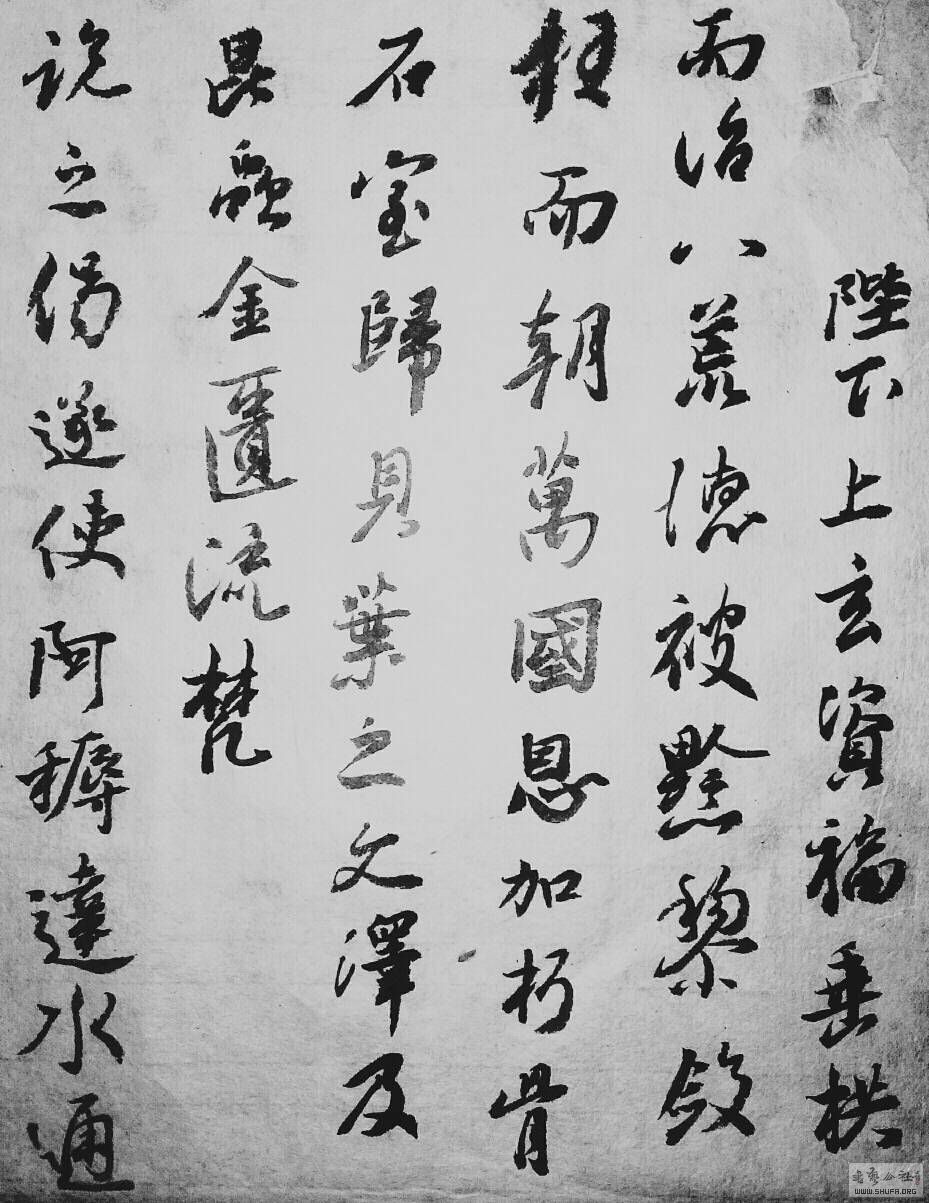 陛下上玄資福垂拱
而治八荒德被黔黎斂
衽而朝萬國恩加朽骨
石室歸貝葉之文澤及
昆蟲金匱流梵
說之偈遂使阿耨達水通
WWW.SHUFA.ORG